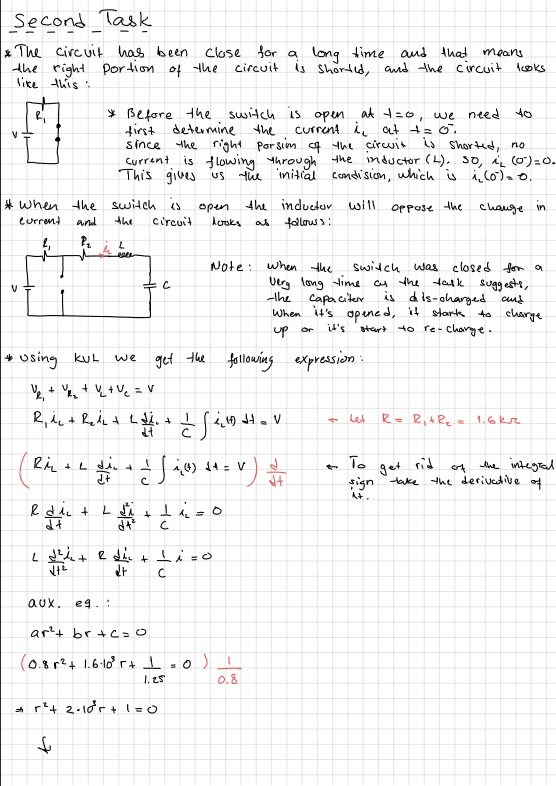 Second Task
* The circuit has been close for a long time and that means
the right portion of the circuit is shorted, and the circuit looks
like this:
R₁
V
* Before the switch is open at t=0, we need to
first determine the current i_L at t = 0⁻.
since the right porsion of the circuit is shorted, no
current is flowing through the inductor (L). so, i_L (0⁻)=0.
This gives us the initial condision, which is i_L(0⁻) = 0.
* When the switch is open the inductor will oppose the change in
current and the circuit looks as follows:
R₁ R₂ i_L L
V
C
Note: when the switch was closed for a
very long time as the task suggests,
the capacitor is dis-charged and
when it's opened, it starts to charge
up or it's start to re-charge.
* using KVL we get the following expression:
V_R₁ + V_R₂ + V_L + V_C = V
R₁ i_L + R₂ i_L + L di_L/dt + 1/C ∫ i_L(t) dt = V ← Let R = R₁+R₂ = 1.6 kΩ
(R i_L + L di_L/dt + 1/C ∫ i_L(t) dt = V) d/dt ← To get rid of the integral
sign take the derivative of
it.
R di_L/dt + L d²i/dt² + 1/C i_L = 0
L d²i_L/dt² + R di_L/dt + 1/C i = 0
aux. eq.:
ar² + br + c = 0
(0.8 r² + 1.6·10³ r + 1/1.25 = 0) 1/0.8
⇒ r² + 2·10³ r + 1 = 0
↓